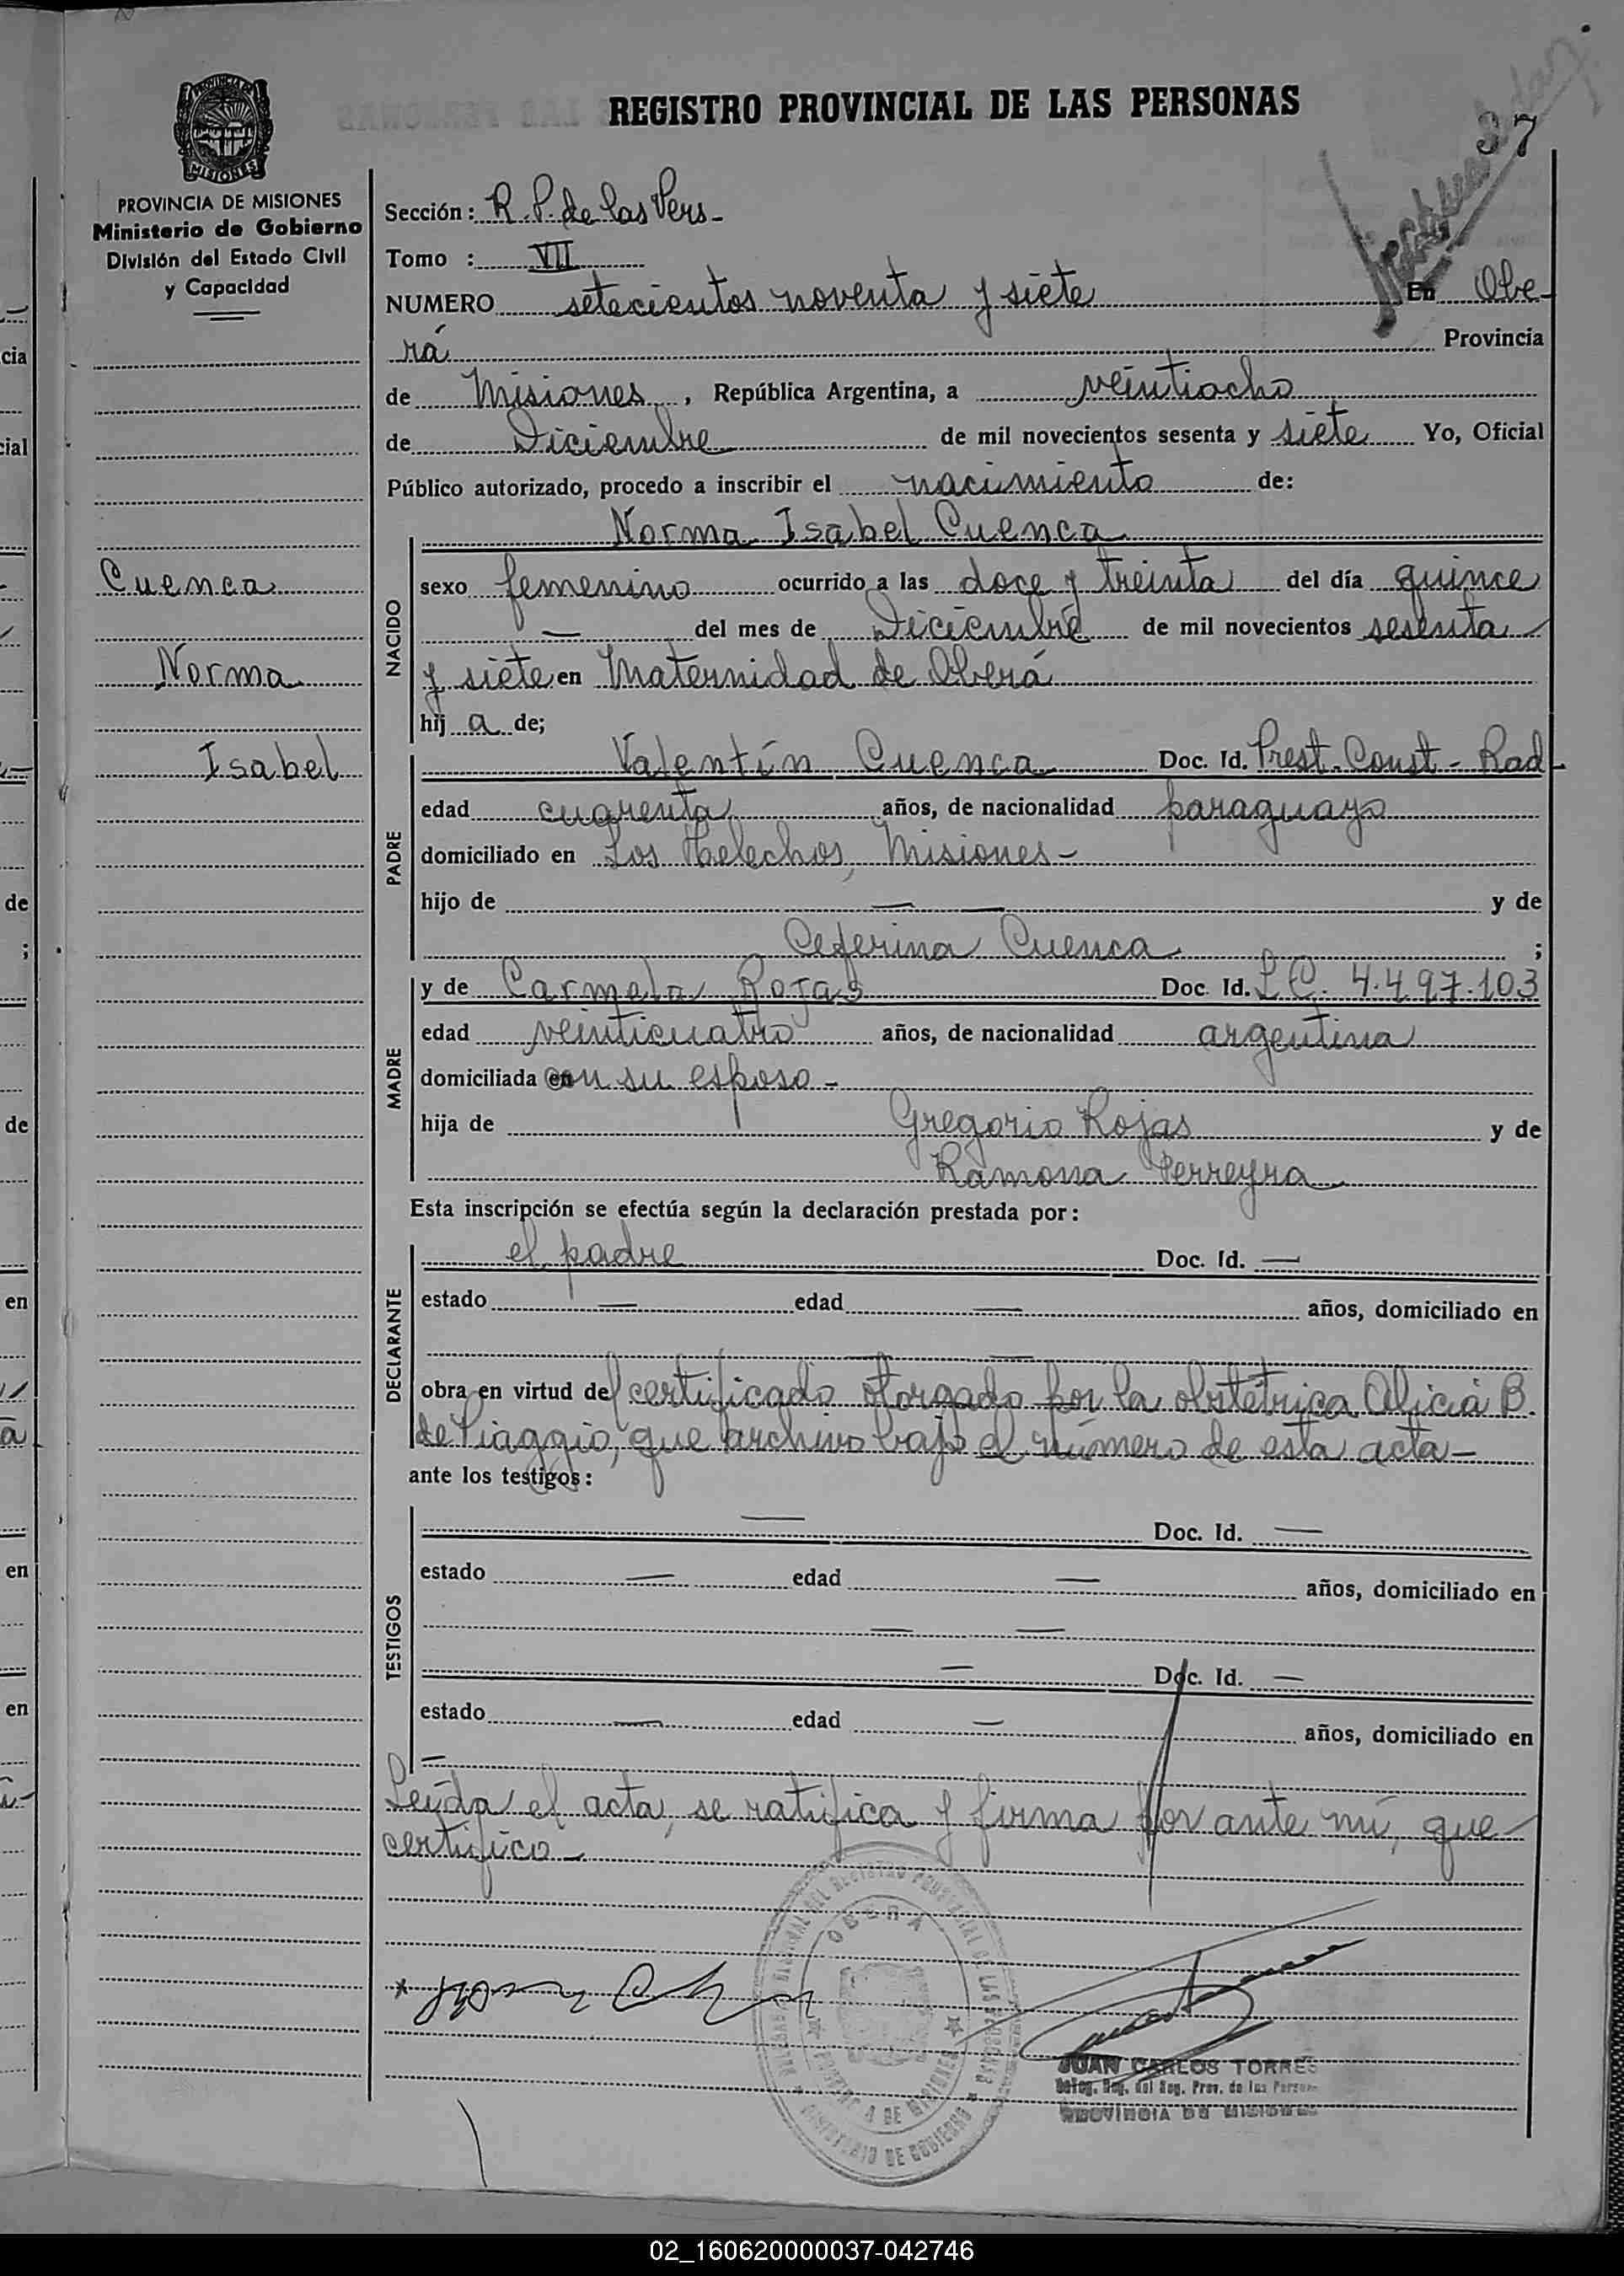 REGISTRO PROVINCIAL DE LAS PERSONAS
37
PROVINCIA DE
MISIONES
PROVINCIA DE MISIONES
Ministerio de Gobierno
División del Estado Civil
y Capacidad
Cuenca
Norma
Isabel
Sección: R. P. de las Pers-
Tomo : VII
NUMERO setecientos noventa y siete En Obe-
rá Provincia
de Misiones, República Argentina, a veintiocho
de Diciembre de mil novecientos sesenta y siete Yo, Oficial
Público autorizado, procedo a inscribir el nacimiento de:
Norma Isabel Cuenca
NACIDO
sexo femenino ocurrido a las doce y treinta del día quince
— del mes de Diciembre de mil novecientos sesenta
y siete en Maternidad de Oberá
hij a de;
PADRE
Valentín Cuenca Doc. Id. Prest. Const - Rad-
edad cuarenta años, de nacionalidad paraguayo
domiciliado en Los Helechos, Misiones-
hijo de — — y de
Ceferina Cuenca ;
MADRE
y de Carmela Rojas Doc. Id. L.C. 4.497.103
edad veinticuatro años, de nacionalidad argentina
domiciliada en con su esposo-
hija de Gregorio Rojas y de
Ramona Ferreyra
Esta inscripción se efectúa según la declaración prestada por:
DECLARANTE
el padre Doc. Id. —
estado — edad — años, domiciliado en
— —
obra en virtud del certificado otorgado por la obstétrica Alicia B.
de Piaggio, que archivo bajo el número de esta acta-
ante los testigos:
TESTIGOS
— Doc. Id. —
estado — edad — años, domiciliado en
— —
— Doc. Id. —
estado — edad — años, domiciliado en
Leída el acta, se ratifica y firma por ante mí, que
certifico-
OBERA
MINISTERIO DE GOBIERNO
JUAN CARLOS TORRES
Deleg. Reg. del Reg. Prov. de las Person
PROVINCIA DE MISIONES
cia
cial
de
;
de
en
a
en
en
02_160620000037-042746